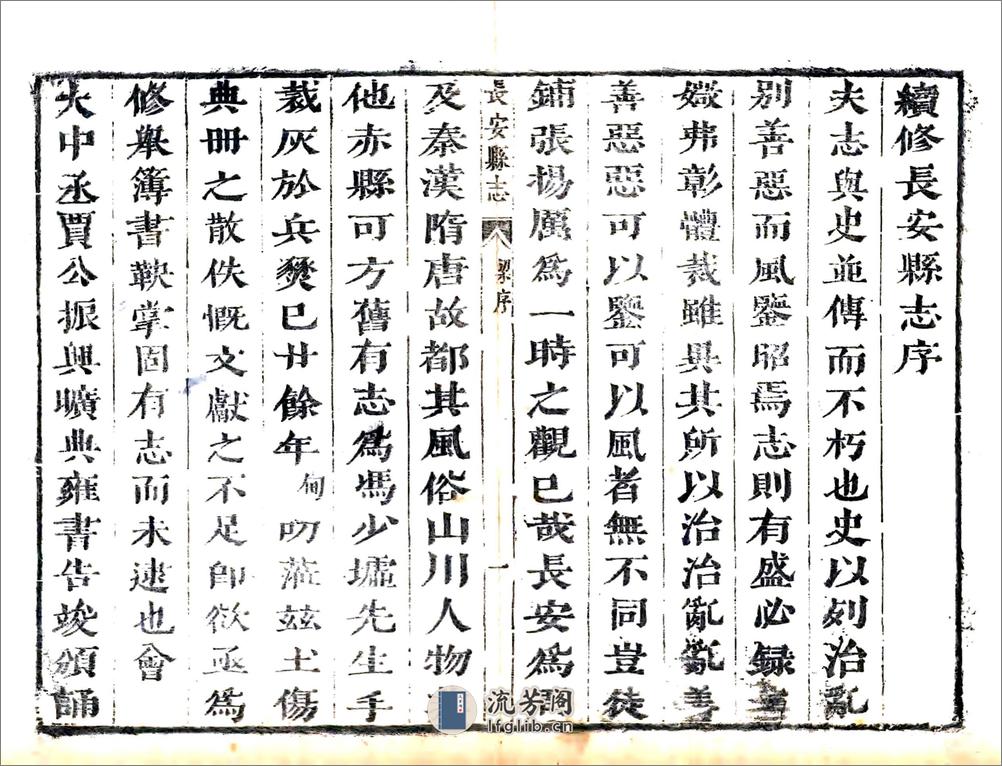 續修長安縣志序
夫志與史並傳而不朽也史以列治亂
別善惡而風鑒昭焉志則有盛必録
媺弗彰體裁雖異其所以治治亂亂善
善惡惡可以鑒可以風者無不同豈徒
鋪張揚厲爲一時之觀已哉長安爲
長安縣志
梁序
一
及秦漢隋唐故都其風俗山川人物
他赤縣可方舊有志爲馮少墟先生手
裁灰於兵燹已廿餘年甸叨蒞兹土傷
典冊之散佚慨文獻之不足卽欲亟爲
修舉簿書鞅掌固有志而未逮也會
大中丞賈公振興曠典雍書告竣頒誦
流芳阁
lfglib.cn